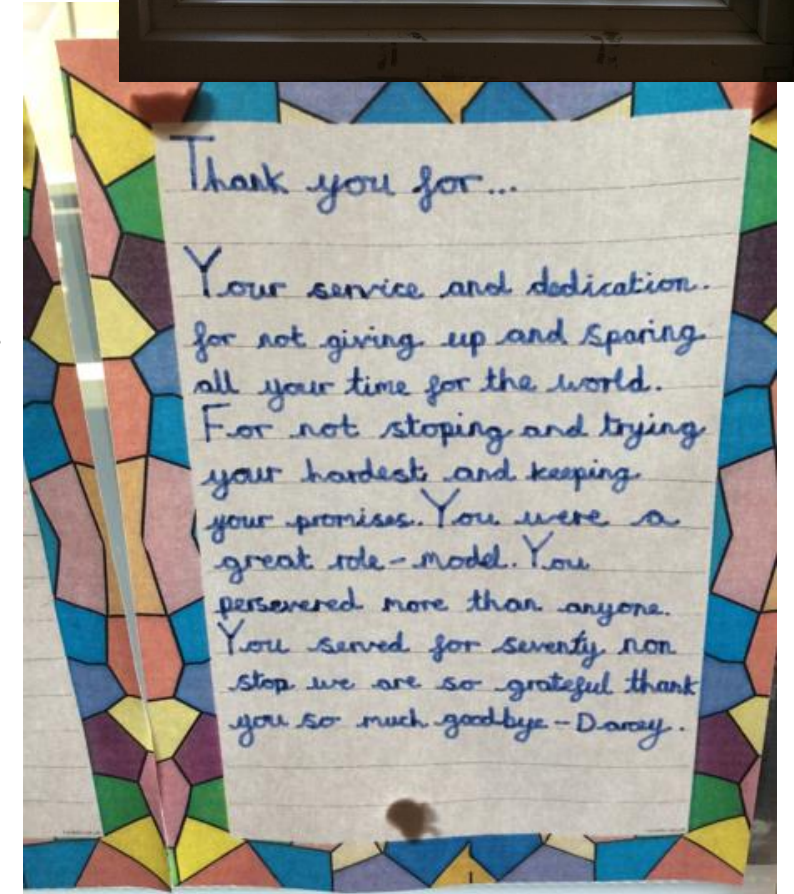 Thank you for...
Your service and dedication.
for not giving up and sparing
all your time for the world.
For not stoping and trying
your hardest and keeping
your promises. You were a
great role-model. You
persevered more than anyone.
You served for seventy non
stop we are so grateful thank
you so much goodbye - Darcey.